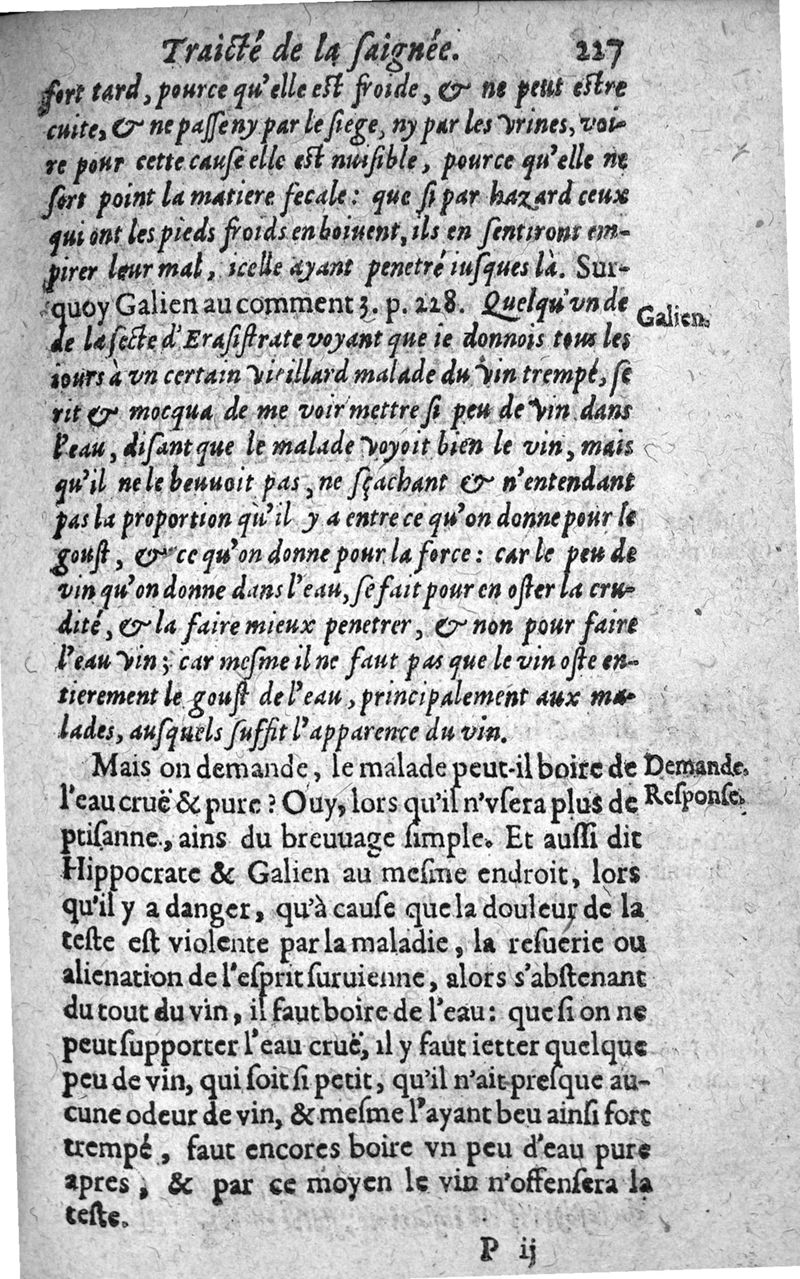 Traicté de la ſaignée. 227
fort tard, pource qu'elle eſt froide, & ne peut eſtre
cuite, & ne paſſe ny par le ſiege, ny par les vrines, voi-
re pour cette cauſe elle eſt nuiſible, pource qu'elle ne
ſort point la matiere fecale: que ſi par hazard ceux
qui ont les pieds froids en boiuent, ils en ſentiront em-
pirer leur mal, icelle ayant penetré iuſques là. Sur-
quoy Galien au comment 3. p. 228. Quelqu'vn de
Galien.
de la ſecte d'Eraſiſtrate voyant que ie donnois tous les
iours à vn certain vieillard malade du vin trempé, ſe
rit & mocqua de me voir mettre ſi peu de vin dans
l'eau, diſant que le malade voyoit bien le vin, mais
qu'il ne le beuuoit pas, ne ſçachant & n'entendant
pas la proportion qu'il y a entre ce qu'on donne pour le
gouſt, & ce qu'on donne pour la force: car le peu de
vin qu'on donne dans l'eau, ſe fait pour en oſter la cru-
dité, & la faire mieux penetrer, & non pour faire
l'eau vin; car meſme il ne faut pas que le vin oſte en-
tierement le gouſt de l'eau, principalement aux ma-
lades, auſquels ſuffit l'apparence du vin.
Mais on demande, le malade peut-il boire de
Demande.
l'eau cruë & pure? Ouy, lors qu'il n'vſera plus de
Reſponſe.
ptiſanne, ains du breuuage ſimple. Et auſſi dit
Hippocrate & Galien au meſme endroit, lors
qu'il y a danger, qu'à cauſe que la douleur de la
teſte eſt violente par la maladie, la reſuerie ou
alienation de l'eſprit ſuruienne, alors s'abſtenant
du tout du vin, il faut boire de l'eau: que ſi on ne
peut ſupporter l'eau cruë, il y faut ietter quelque
peu de vin, qui ſoit ſi petit, qu'il n'ait preſque au-
cune odeur de vin, & meſme l'ayant beu ainſi fort
trempé, faut encores boire vn peu d'eau pure
apres, & par ce moyen le vin n'offenſera la
teſte.
P ij